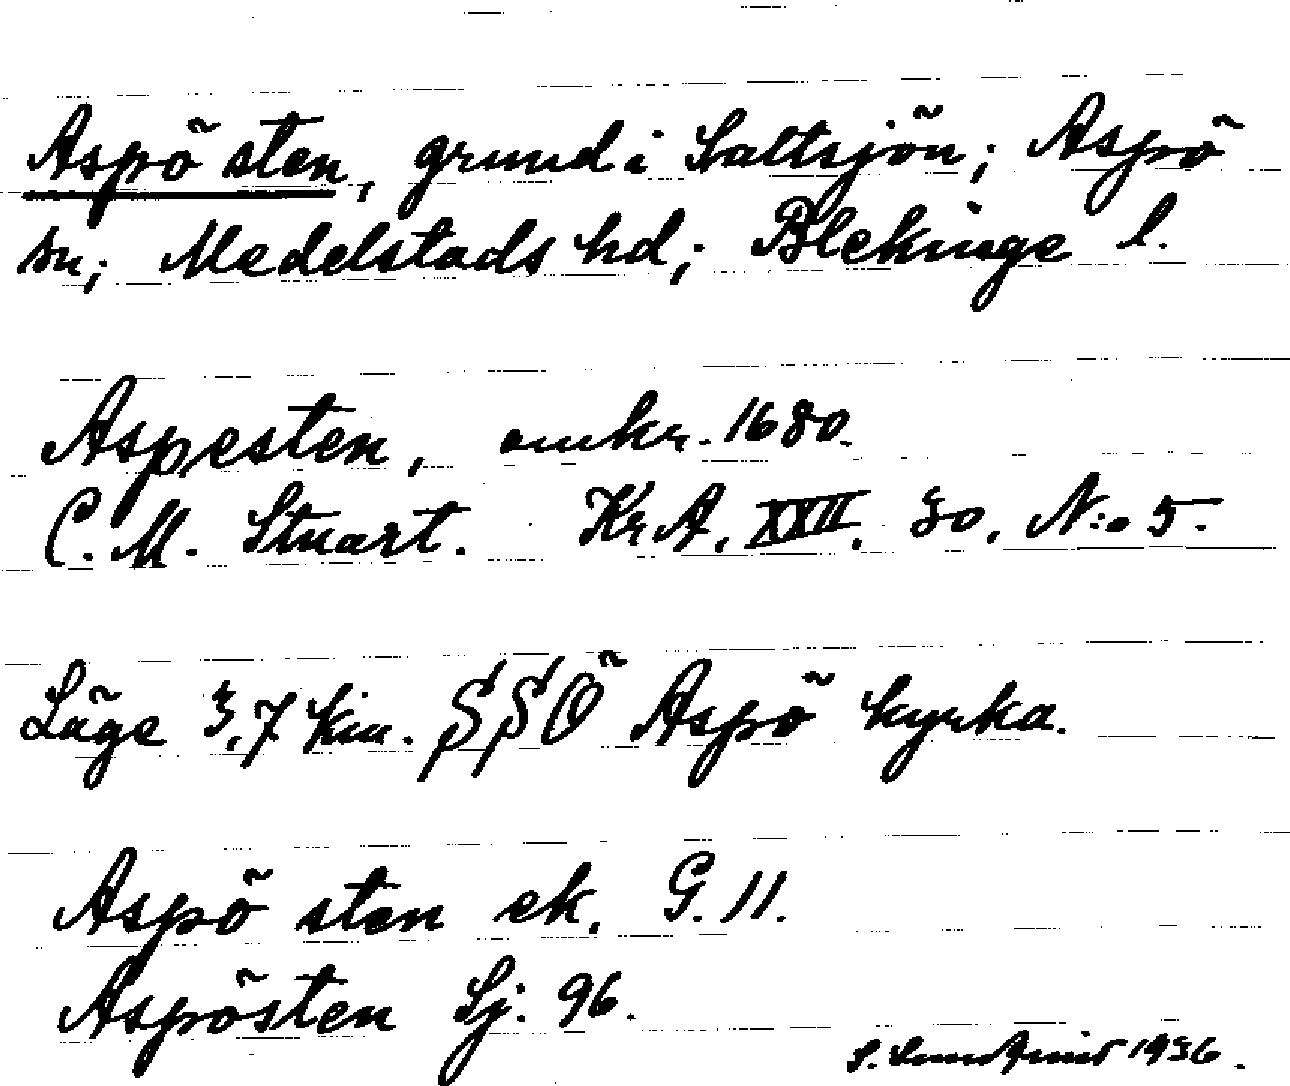 Aspö sten, grund i Saltsjön; Aspö
sn; Medelstads hd; Blekinge l.
Aspesten, omkr. 1680.
C. M. Stuart. KrA, XVII. 80, N:o 5.
Läge 3,7 km. SSÖ Aspö kyrka.
Aspö sten ek. G. 11.
Aspösten Sj. 96.
S. 1936.